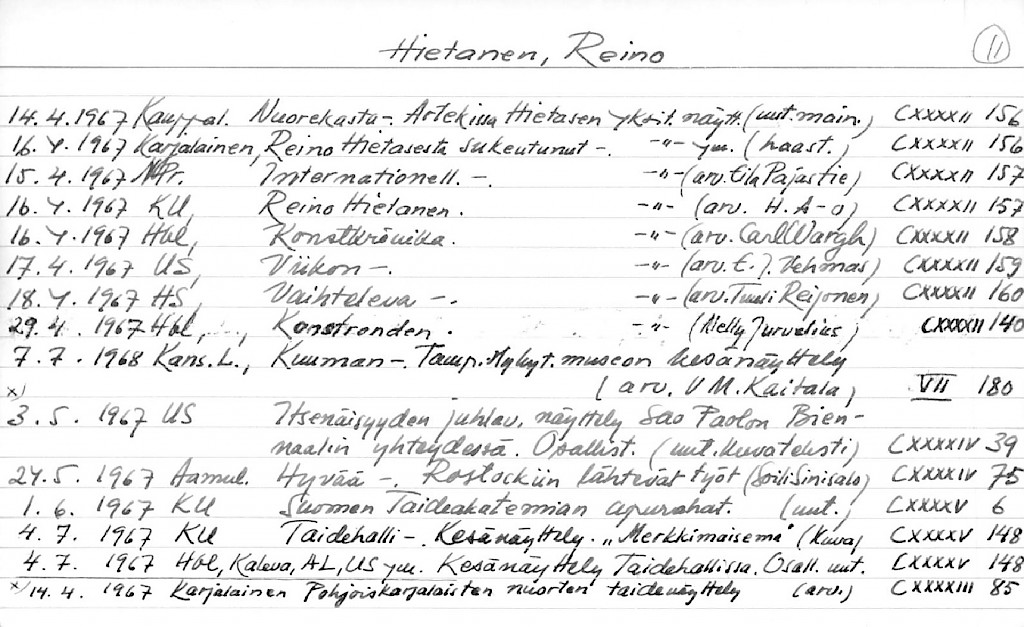 Hietanen, Reino
11
14.4.1967 Kauppal. Nuorekasta -. Artekissa Hietasen yksit. näytt. (uut. main.) CXXXXII 156
16.4.1967 Karjalainen, Reino Hietasesta sukeutunut -. -"- ym. (haast.) CXXXXII 156
15.4.1967 NPr. Internationell. -. -"- (arv. Eila Pajastie) CXXXXII 157
16.4.1967 KU, Reino Hietanen. -"- (arv. H. A-o) CXXXXII 157
16.4.1967 Hbl, Konstkrönika. -"- (arv. Carl Wargh) CXXXXII 158
17.4.1967 US, Viikon -. -"- (arv. E. J. Vehmas) CXXXXII 159
18.4.1967 HS, Vaihteleva -. -"- (arv. Tuuli Reijonen) CXXXXII 160
29.4. 1967 Hbl, Konstronden. -"- (Nelly Jurvelius) CXXXXII 140
7.7. 1968 Kans. L., Kuuman -. Tamp. Nykyt. museon kesänäyttely
x) (arv. V M. Kaitala) VII 180
3.5. 1967 US Itsenäisyyden juhlav. näyttely Sao Paolon Bien-
naalin yhteydessä. Osallist. (uut. kuvateksti) CXXXXIV 39
24.5. 1967 Aamul. Hyvää -. Rostockiin lähtevät työt (Soili Sinisalo) CXXXXIV 75
1.6. 1967 KU Suomen Taideakatemian apurahat. (uut.) CXXXXV 6
4.7. 1967 KU Taidehalli -. Kesänäyttely. "Merkkimaisema" (kuva) CXXXXV 148
4.7. 1967 Hbl, Kaleva, AL, US ym. Kesänäyttely Taidehallissa. Osall. uut. CXXXXV 148
x) 14.4. 1967 Karjalainen Pohjoiskarjalaisten nuorten taidenäyttely (arv.) CXXXXIII 85